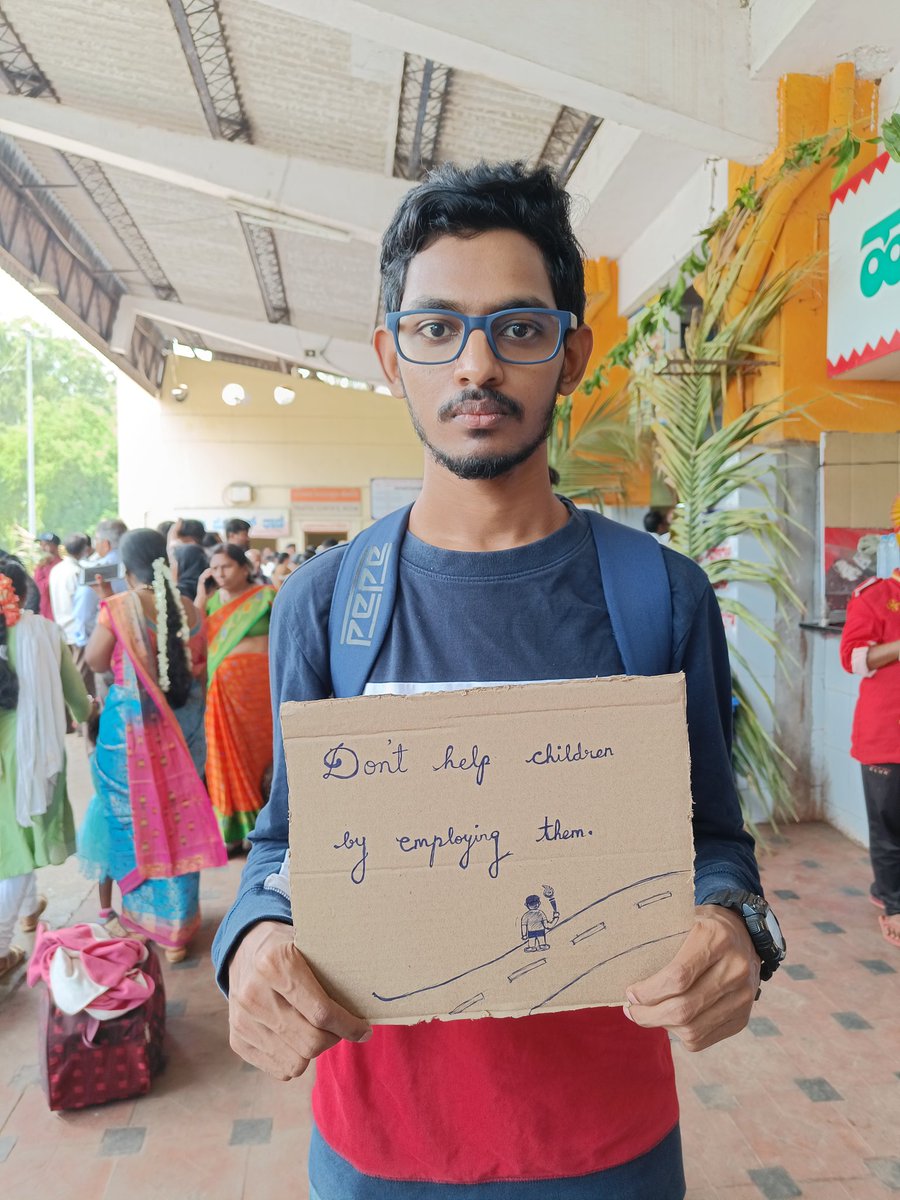 Don't help children
by employing them.
PEPE